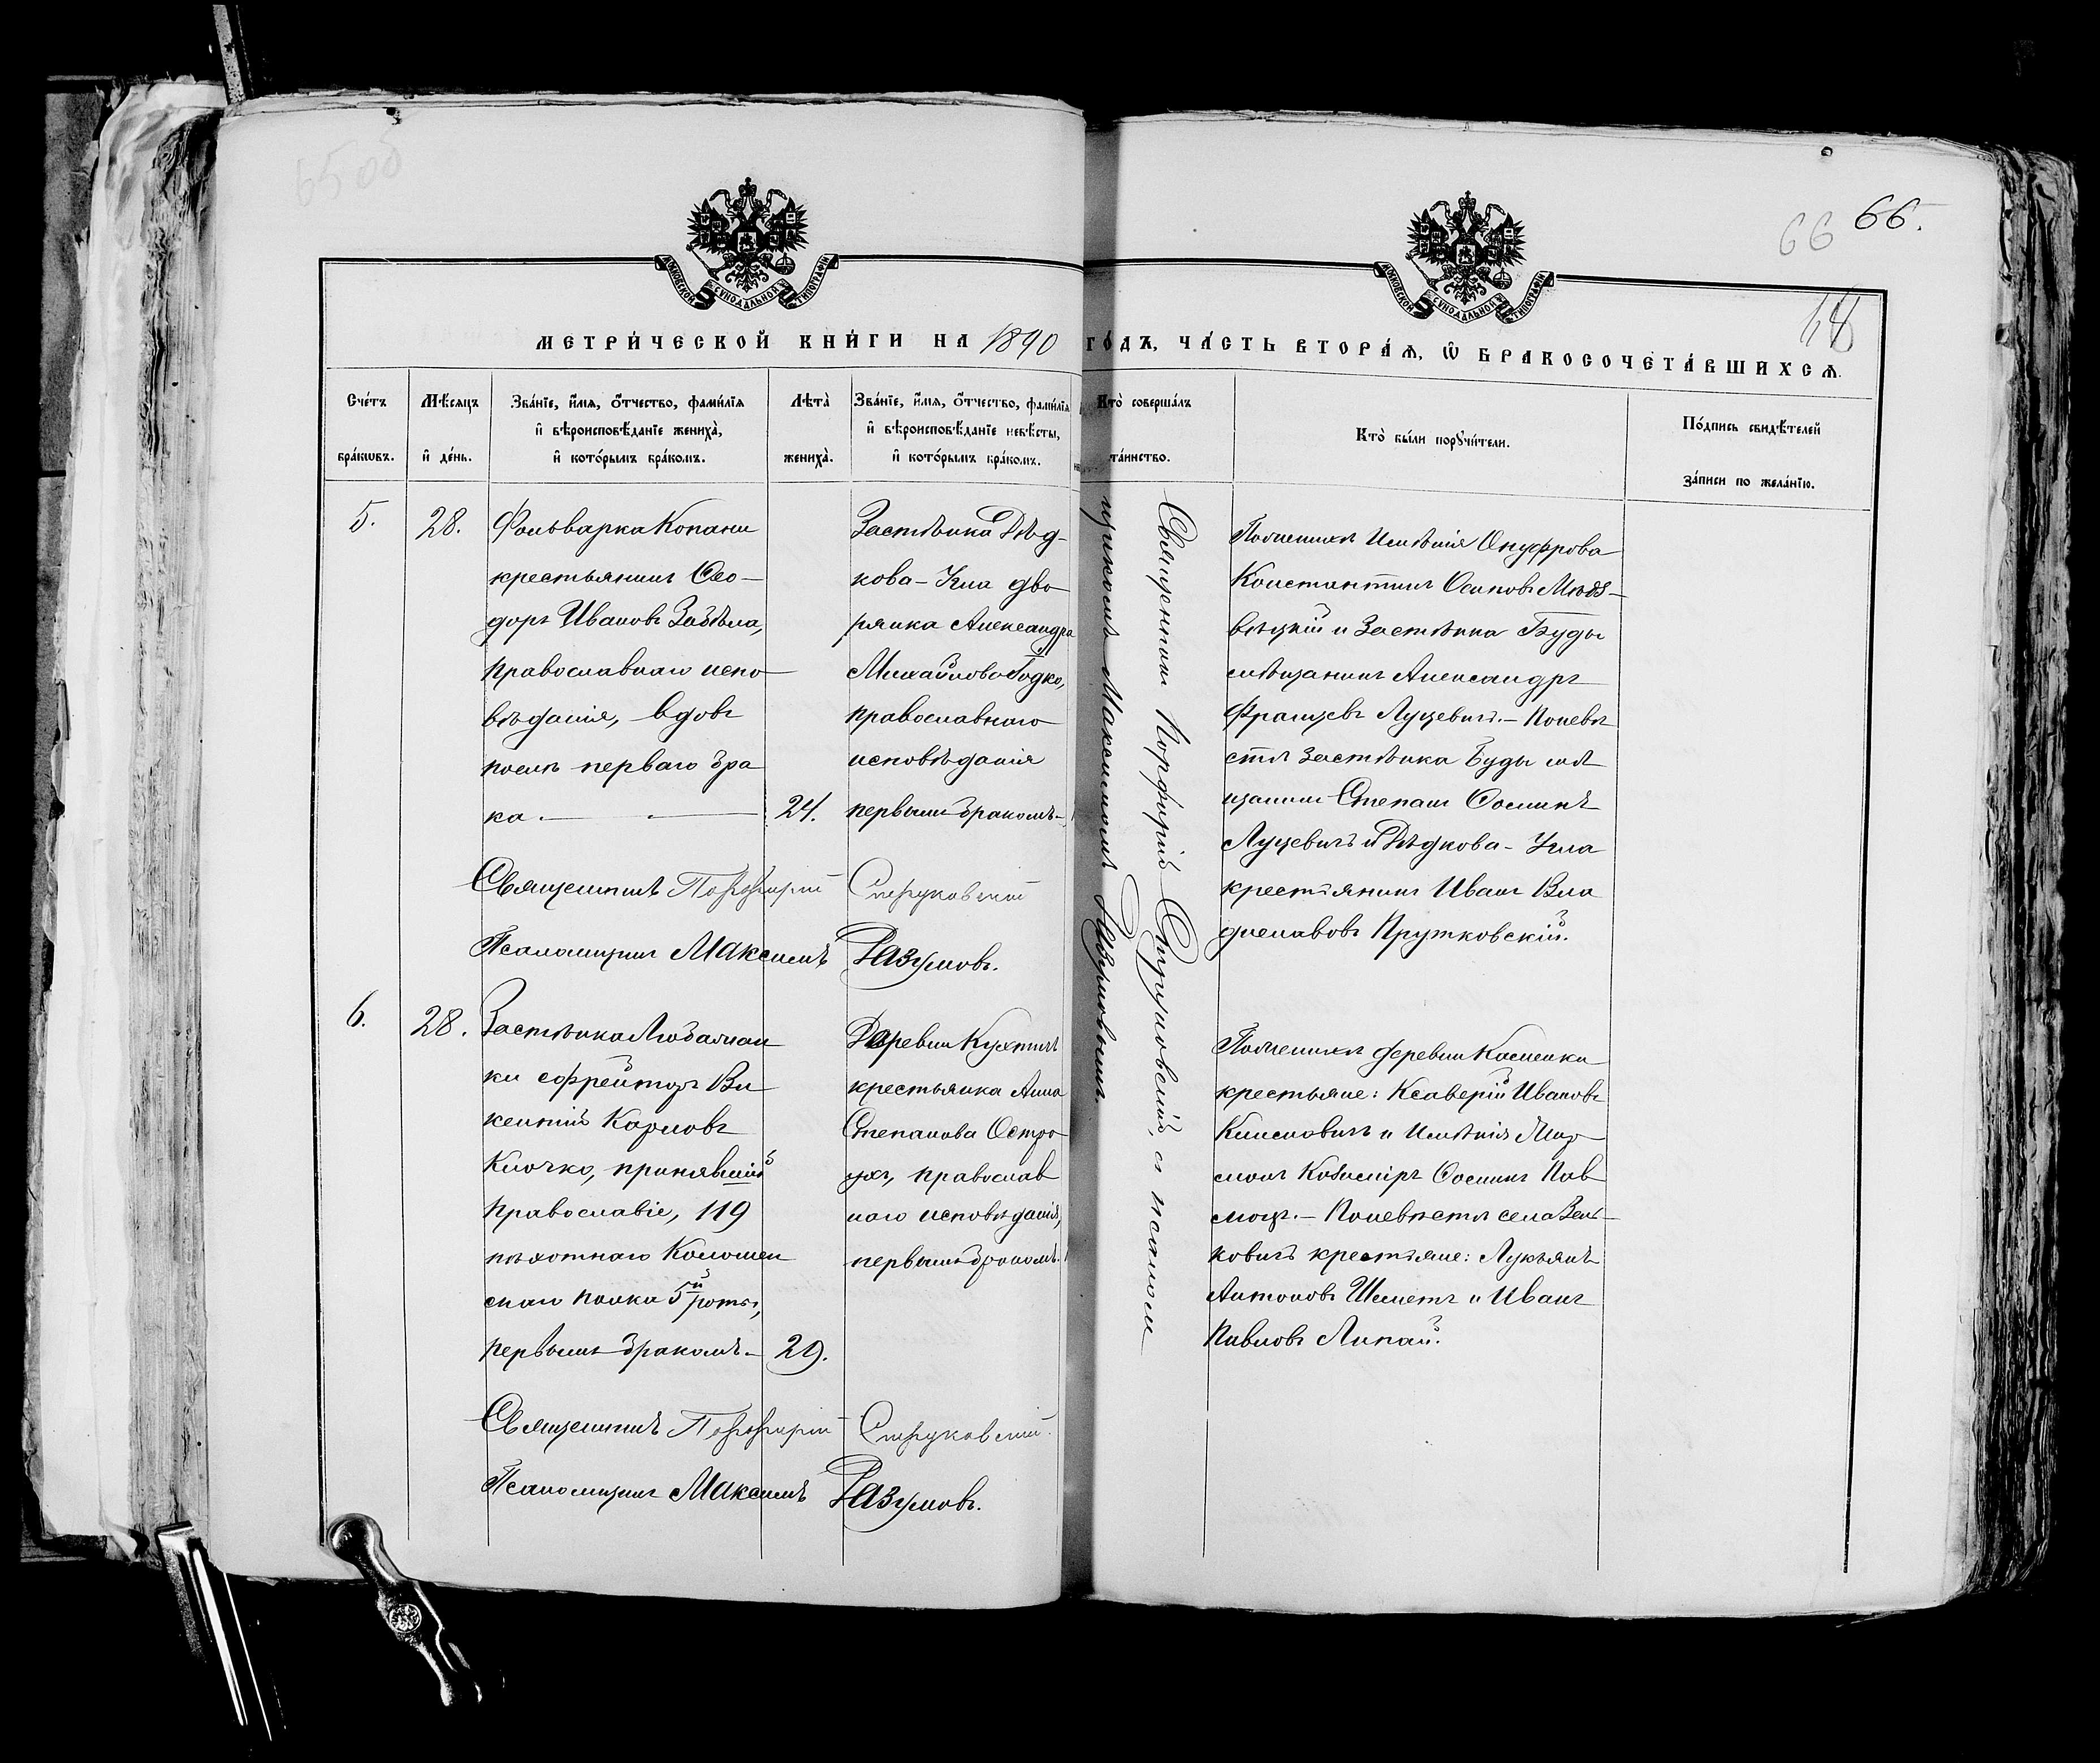 65об
66 66.
68
МОСКОВСКОЙ СѴНОДАЛЬНОЙ ТИПОГРАФІИ
МОСКОВСКОЙ СѴНОДАЛЬНОЙ ТИПОГРАФІИ
МЕТРИ́ЧЕСКОЙ КНИ́ГИ НА 1890 ГО́ДЪ, ЧА́СТЬ ВТОРА́Ѧ, Ѽ БРАКОСОЧЕТА́ВШИХСѦ.
Сче́тъ
бра́кѡвъ.
Мѣ́сяцъ
и҆ де́нь.
Зва́нїе, и҆́мя, ѻ҆́тчество, фами́лїя
и҆ вѣроисповѣ́данїе жениха̀,
и҆ кото́рымъ бра́комъ.
Лѣта̀
жениха̀.
Зва́нїе, и҆́мя, ѻ҆́тчество, фами́лїя
и҆ вѣроисповѣ́данїе невѣ́сты,
и҆ кото́рымъ бра́комъ.
Кто̀ соверша́лъ
та́инство.
Кто̀ бы́ли порꙋчи́тели.
По́дпись свидѣ́телей
за́писи по жела́нїю.
5.
28.
Фольварка Копани
крестьянинъ Ѳео-
доръ Ивановъ Забѣла,
православнаго испо
вѣданія, вдовъ
послѣ перваго бра
ка.
24.
Застѣнка Рѣд-
кова-Угла дво
рянка Александра
Михайлова Годко,
православнаго
исповѣданія
первымъ бракомъ.
Священникъ Порфирій Струковскій, съ псаломщикомъ Максимомъ Разумовымъ.
По женихѣ Имѣнія Онуфрова
Константинъ Осиповъ
и Застѣнка Буды
мѣщанинъ Александръ
Францевъ Луцевичъ.– По невѣ
стѣ Застѣнка Буды мѣ
щанинъ Степанъ Ѳоминъ
Луцевичъ и Рѣдкова-Угла
крестьянинъ Иванъ Вла
диславовъ Прутковскій.
Священникъ Порфирій Струковскій
Псаломщикъ Максимъ Разумовъ.
6.
28.
Застѣнка
ефрейторъ Ви
кентій Карловъ
Клочко, принявшій
Православіе, 119
пѣхотнаго Коломен
скаго полка 5й роты,
первымъ бракомъ.
29.
Деревни
крестьянка Анна
Степанова Остро
ухъ, православ
наго исповѣданія,
первымъ бракомъ.
По женихѣ деревни Каменки
крестьяне: Ксаверій Ивановъ
и Имѣнія
Казиміръ Ѳоминъ Пав
По невѣстѣ села Вель-
ковичъ крестьяне: Лукьянъ
Антоновъ Шеметъ и Иванъ
Павловъ Липай.
Священникъ Порфирій Струковскій.
Псаломщикъ Максимъ Разумовъ.